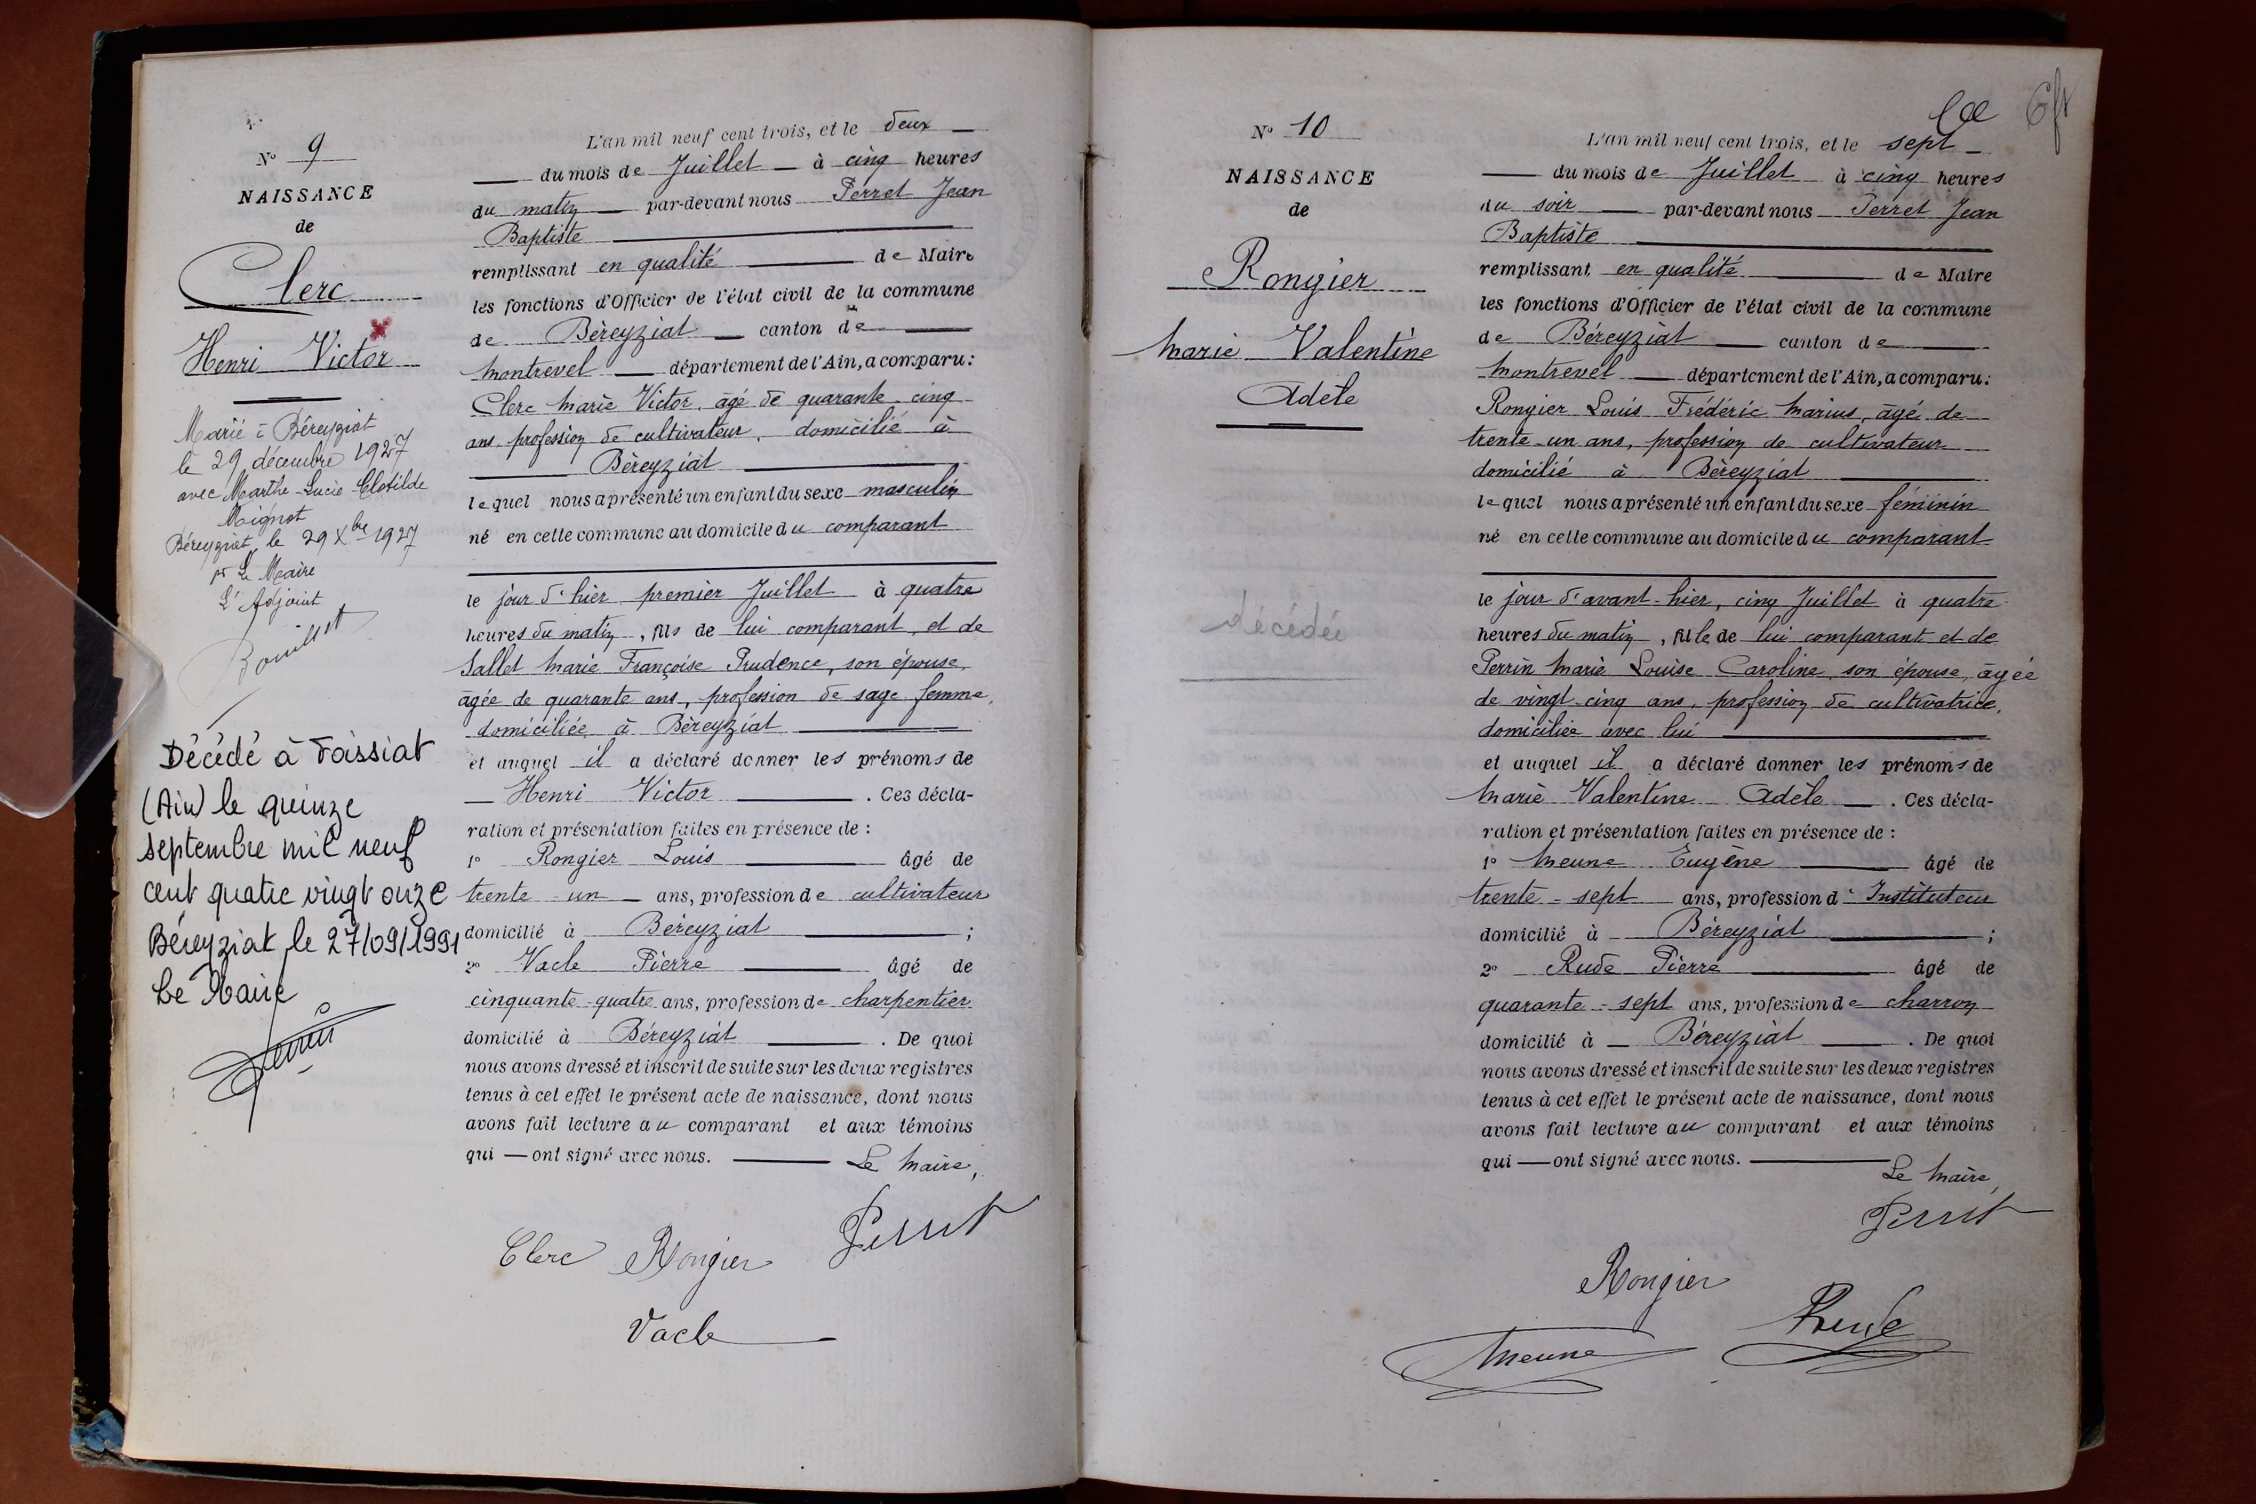 N° 9
NAISSANCE
de
Clerc
Henri Victor
Marié à Béreyziat
le 29 décembre 1927
avec Marthe-Lucie-Clotilde
Moignot
Béreyziat, le 29 Xbre 1927
pr Le Maire
L'Adjoint
Décédé à Foissiat
(Ain) le quinze
septembre mil neuf
cent quatre vingt onze
Béreyziat, le 27/09/1991
Le Maire
L'an mil neuf cent trois, et le deux
du mois de Juillet à cinq heures
du matin par-devant nous Perret Jean
Baptiste
remplissant en qualité de Maire
les fonctions d'Officier de l'état civil de la commune
de Béreyziat canton de
Montrevel département de l'Ain, a comparu:
Clerc Marie Victor, âgé de quarante-cinq
ans, profession de cultivateur, domicilié à
Béreyziat
lequel nous a présenté un enfant du sexe masculin
né en cette commune au domicile du comparant
le jour d'hier premier Juillet à quatre
heures du matin, fils de lui comparant, et de
Sallet Marie Françoise Prudence, son épouse,
âgée de quarante ans, profession de sage femme,
domiciliée à Béreyziat
et auquel il a déclaré donner les prénoms de
Henri Victor . Ces décla-
ration et présentation faites en présence de :
1° Rongier Louis âgé de
trente-un ans, profession de cultivateur
domicilié à Béreyziat ;
2° Vacle Pierre âgé de
cinquante-quatre ans, profession de charpentier
domicilié à Béreyziat . De quoi
nous avons dressé et inscrit de suite sur les deux registres
tenus à cet effet le présent acte de naissance, dont nous
avons fait lecture au comparant et aux témoins
qui — ont signé avec nous. Le Maire,
Clerc Rongier Perret
Vacle
N° 10
NAISSANCE
de
Rongier
Marie Valentine
Adèle
décédée
L'an mil neuf cent trois, et le sept
du mois de Juillet à cinq heures
du soir par-devant nous Perret Jean
Baptiste
remplissant en qualité de Maire
les fonctions d'Officier de l'état civil de la commune
de Béreyziat canton de
Montrevel département de l'Ain, a comparu:
Rongier Louis Frédéric Marius, âgé de
trente-un ans, profession de cultivateur
domicilié à Béreyziat
lequel nous a présenté un enfant du sexe féminin
né en cette commune au domicile du comparant
le jour d'avant-hier, cinq Juillet à quatre
heures du matin, fille de lui comparant et de
Perrin Marie Louise Caroline, son épouse, âgée
de vingt-cinq ans, profession de cultivatrice,
domiciliée avec lui
et auquel il a déclaré donner les prénoms de
Marie Valentine Adèle . Ces décla-
ration et présentation faites en présence de :
1° Meune Eugène âgé de
trente-sept ans, profession d'Instituteur
domicilié à Béreyziat ;
2° Rude Pierre âgé de
quarante-sept ans, profession de charron
domicilié à Béreyziat . De quoi
nous avons dressé et inscrit de suite sur les deux registres
tenus à cet effet le présent acte de naissance, dont nous
avons fait lecture au comparant et aux témoins
qui — ont signé avec nous.
Le Maire,
Perret
Rongier
Rude
Meune